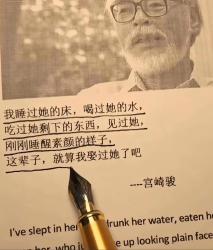 我睡过她的床，喝过她的水，
吃过她剩下的东西，见过她，
刚刚睡醒素颜的样子，
这辈子，就算我娶过她了吧
----宫崎骏
I've slept in her drunk her water, eaten he
her, who ju e up looking plain fac